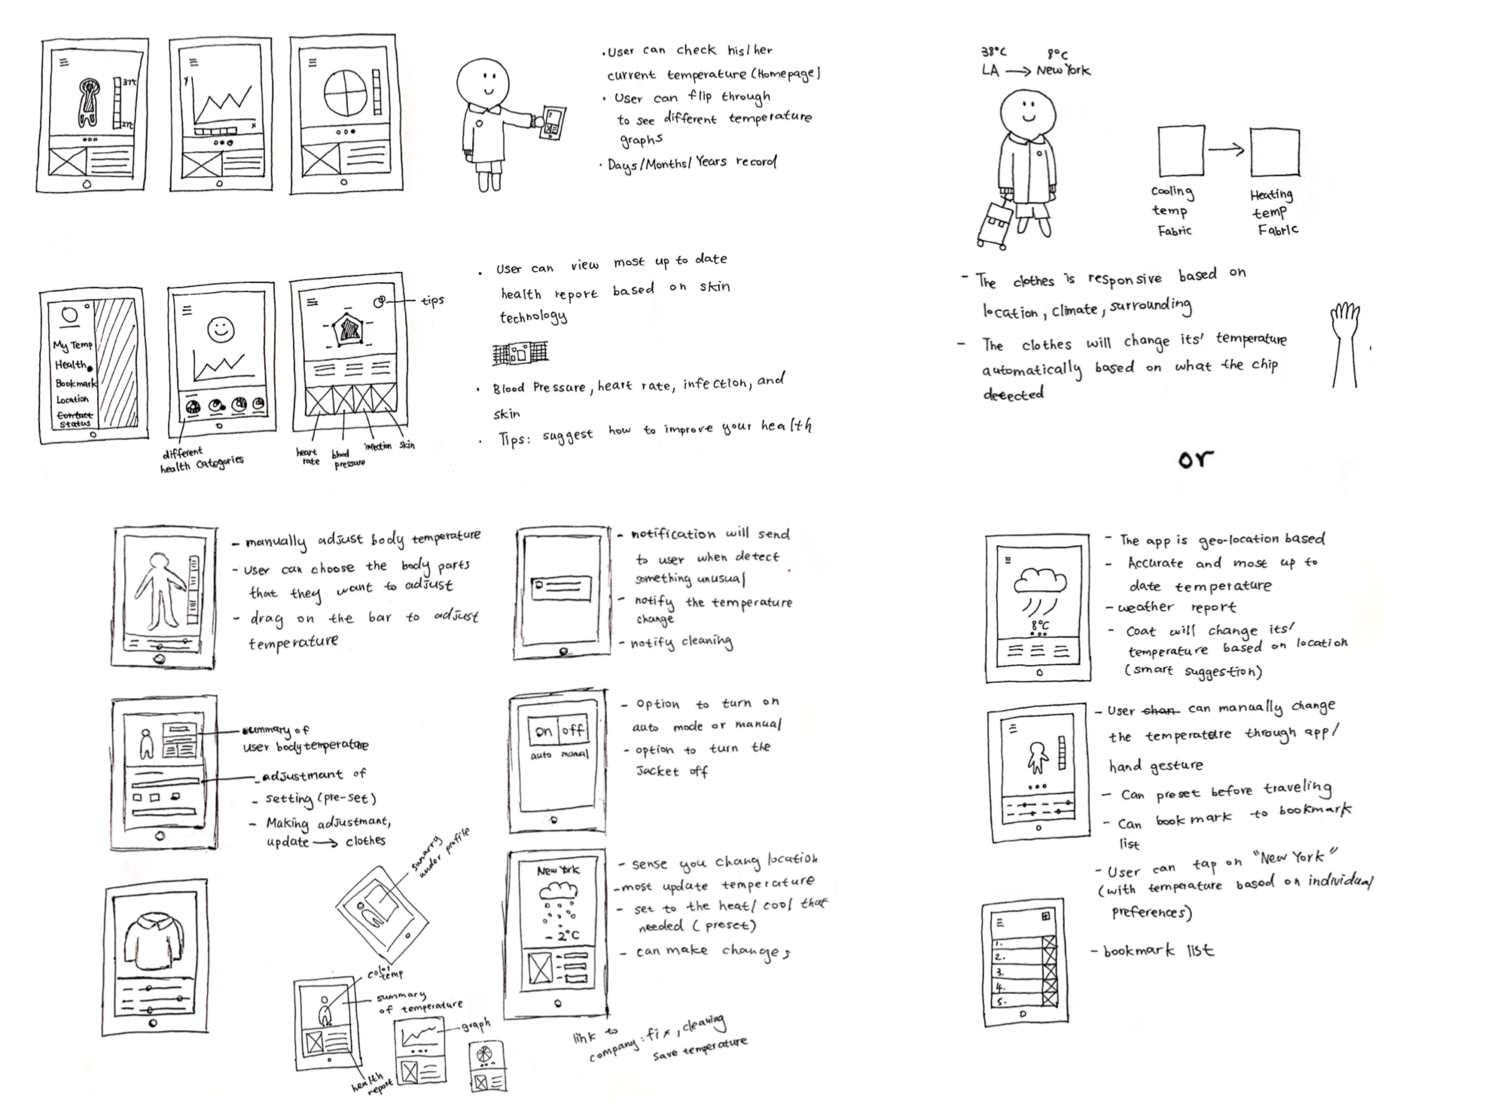 37°C
27°C
Y
X
• User can check his/her
current temperature (Homepage)
• User can flip through
to see different temperature
graphs
• Days/Months/Years record
38°C
8°C
LA → New York
Cooling
temp
Fabric
Heating
temp
Fabric
- The clothes is responsive based on
location, climate, surrounding
- The clothes will change its' temperature
automatically based on what the chip
detected
My Temp
Health
Bookmark
Location
Contact
Status
different
health Catogories
tips
heart
rate
blood
pressure
infection
skin
• User can view most up to date
health report based on skin
technology
• Blood Pressure, heart rate, infection, and
skin
• Tips: suggest how to improve your health
or
- manually adjust body temperature
- User can choose the body parts
that they want to adjust
- drag on the bar to adjust
temperature
- notification will send
to user when detect
something unusual
- notify the temperature
change
- notify cleaning
8°C
- The app is geo-location based
- Accurate and most up to
date temperature
- weather report
- Coat will change its'
temperature based on location
(smart suggestion)
summary of
user body temperature
- adjustmant of
- setting (pre-set)
- Making adjustmant,
update → clothes
on off
auto manual
- Option to turn on
auto mode or manual
- option to turn the
Jacket off
- User chan can manually change
the temperature through app/
hand gesture
- Can preset before traveling
- Can book mark to bookmark
list
- User can tap on "New York"
(with temperature based on individual
preferences)
under profile
New York
- 2°C
- sense you chang location
- most update temperature
- set to the heat/cool that
needed (preset)
- can make changes
1.
2.
3.
4.
5.
- bookmark list
color
temp
summary
of temperature
graph
health
report
link to
company: fix, cleaning
save temperature